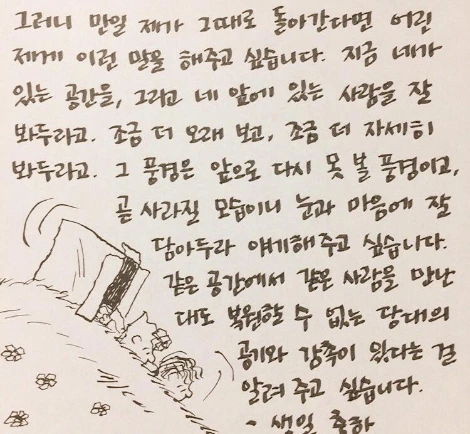 그러니 만일 제가 그때로 돌아간다면 어린
제게 이런 말을 해주고 싶습니다. 지금 네가
있는 공간을, 그리고 네 앞에 있는 사람을 잘
봐두라고. 조금 더 오래 보고, 조금 더 자세히
봐두라고. 그 풍경은 앞으로 다시 못 볼 풍경이고,
곧 사라질 모습이니 눈과 마음에 잘
담아두라 얘기해주고 싶습니다.
같은 공간에서 같은 사람을 만난
대도 복원할 수 없는 당대의
공기와 감촉이 있다는 걸
알려 주고 싶습니다.
- 생일 축하